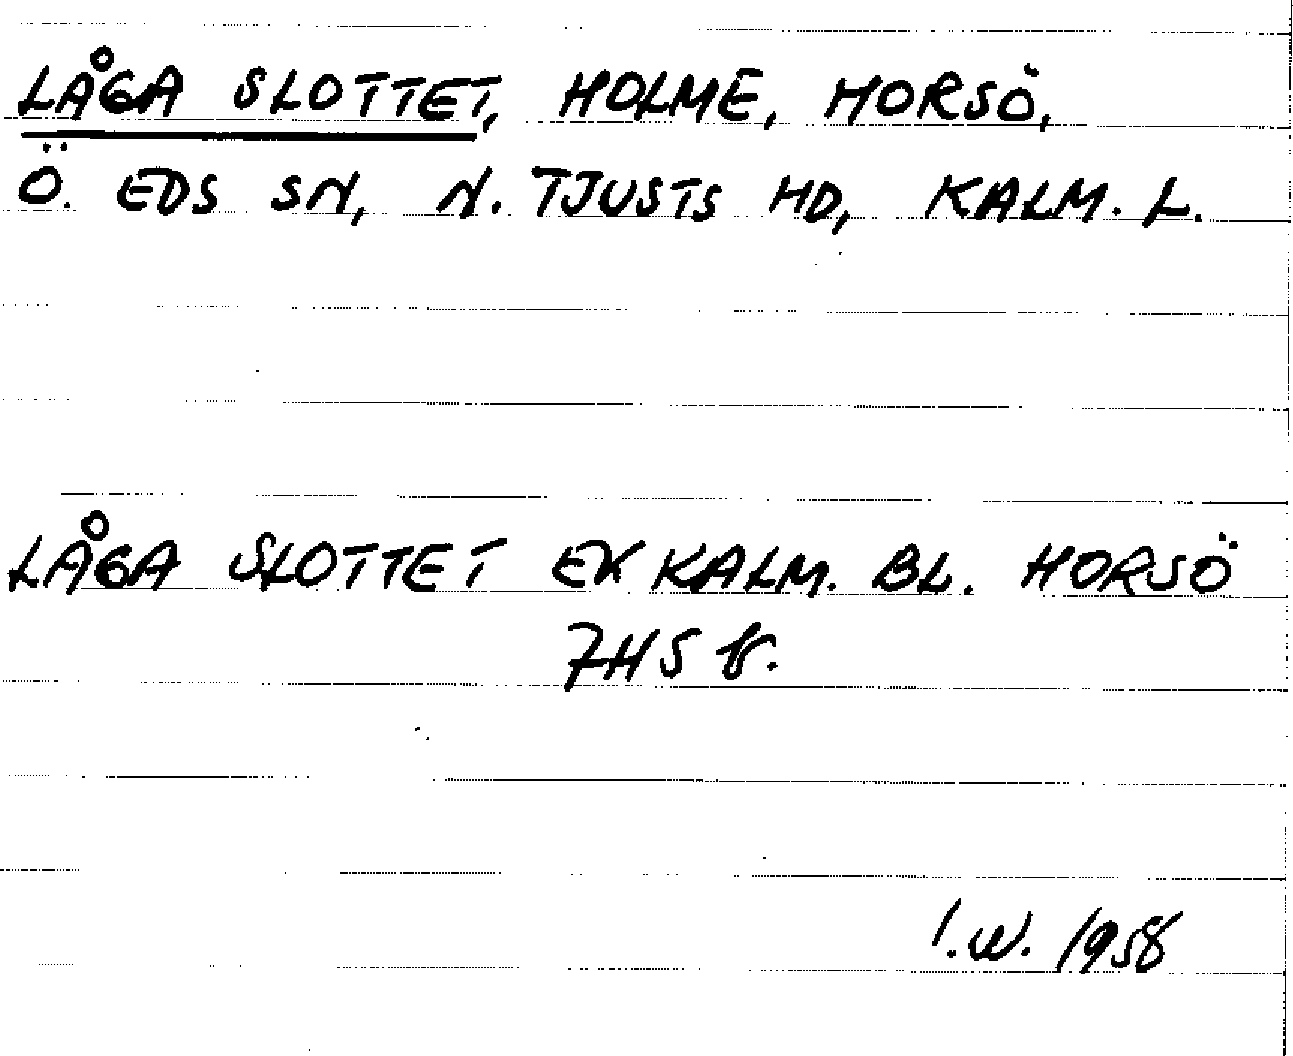 LÅGA SLOTTET, HOLME, HORSÖ,
Ö. EDS SN, N. TJUSTS HD, KALM. L.
LÅGA SLOTTET EK KALM. BL. HORSÖ
7H5
I.W. 1958